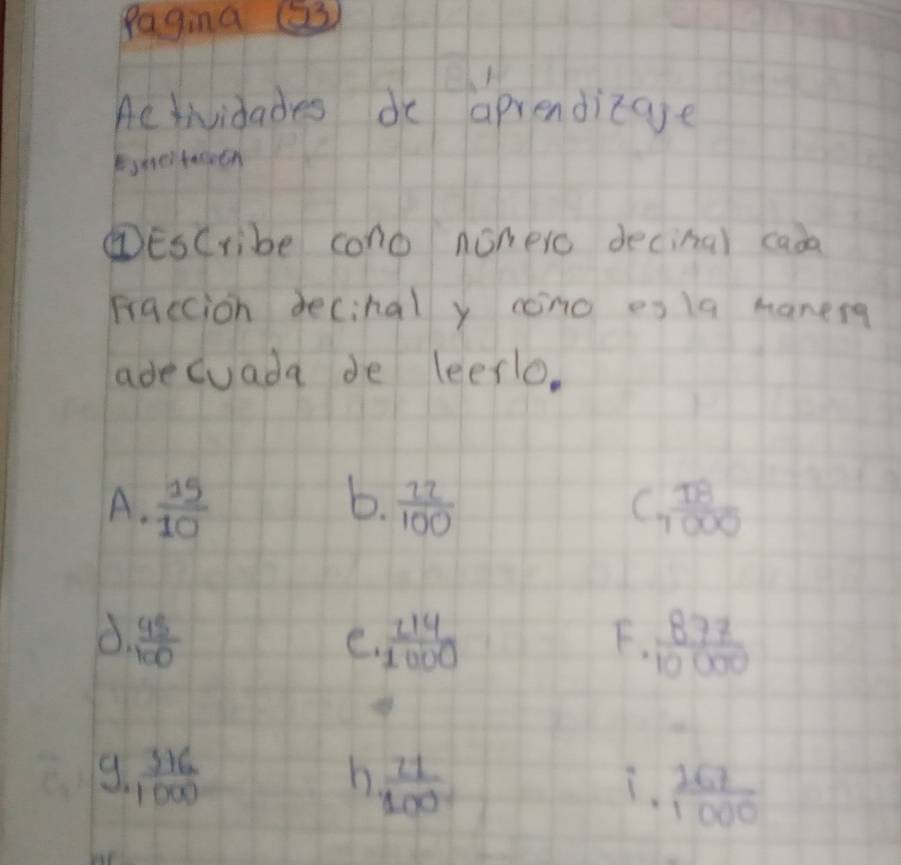 Pagina 53
Actividades de aprendizaje
Ejercitación
① Escribe como número decimal cada
Fracción decimal y como es la manera
adecuada de leerlo.
A. 25/10 b. 22/100 C. 18/1000
d. 45/100 e. 214/1000 F. 872/10 000
g. 316/1000 h. 21/100 i. 267/1 000